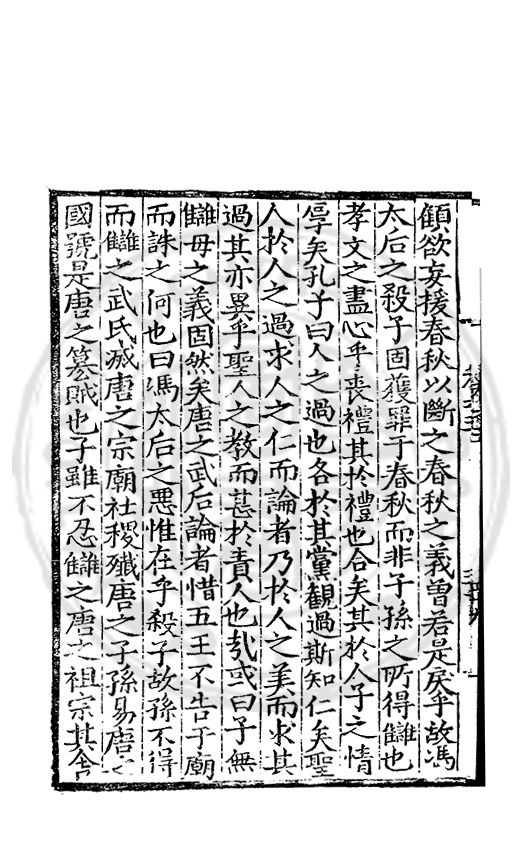 顧欲妄援春秋以斷之春秋之義曽若是戾乎故馮
太后之殺子固獲罪于春秋而非子孫之所得讎也
孝文之盡心乎喪禮其於禮也合矣其於人子之情
厚矣孔子曰人之過也各於其黨觀過斯知仁矣聖
人於人之過求人之仁而論者乃於人之美而求其
過其亦異乎聖人之教而甚於責人也㢤或曰子無
讎母之義固然矣唐之武后論者惜五王不告于廟
而誅之何也曰馮太后之悪惟在乎殺子故孫不得
而讎之武氏滅唐之宗廟社稷殲唐之子孫易唐之
國號是唐之篡賊也子雖不忍讎之唐之祖宗其舎